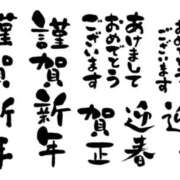 おめでとう
ございます
迎
あけまして
おめでとう
ございます
迎春
賀正
謹賀新年
謹賀新年